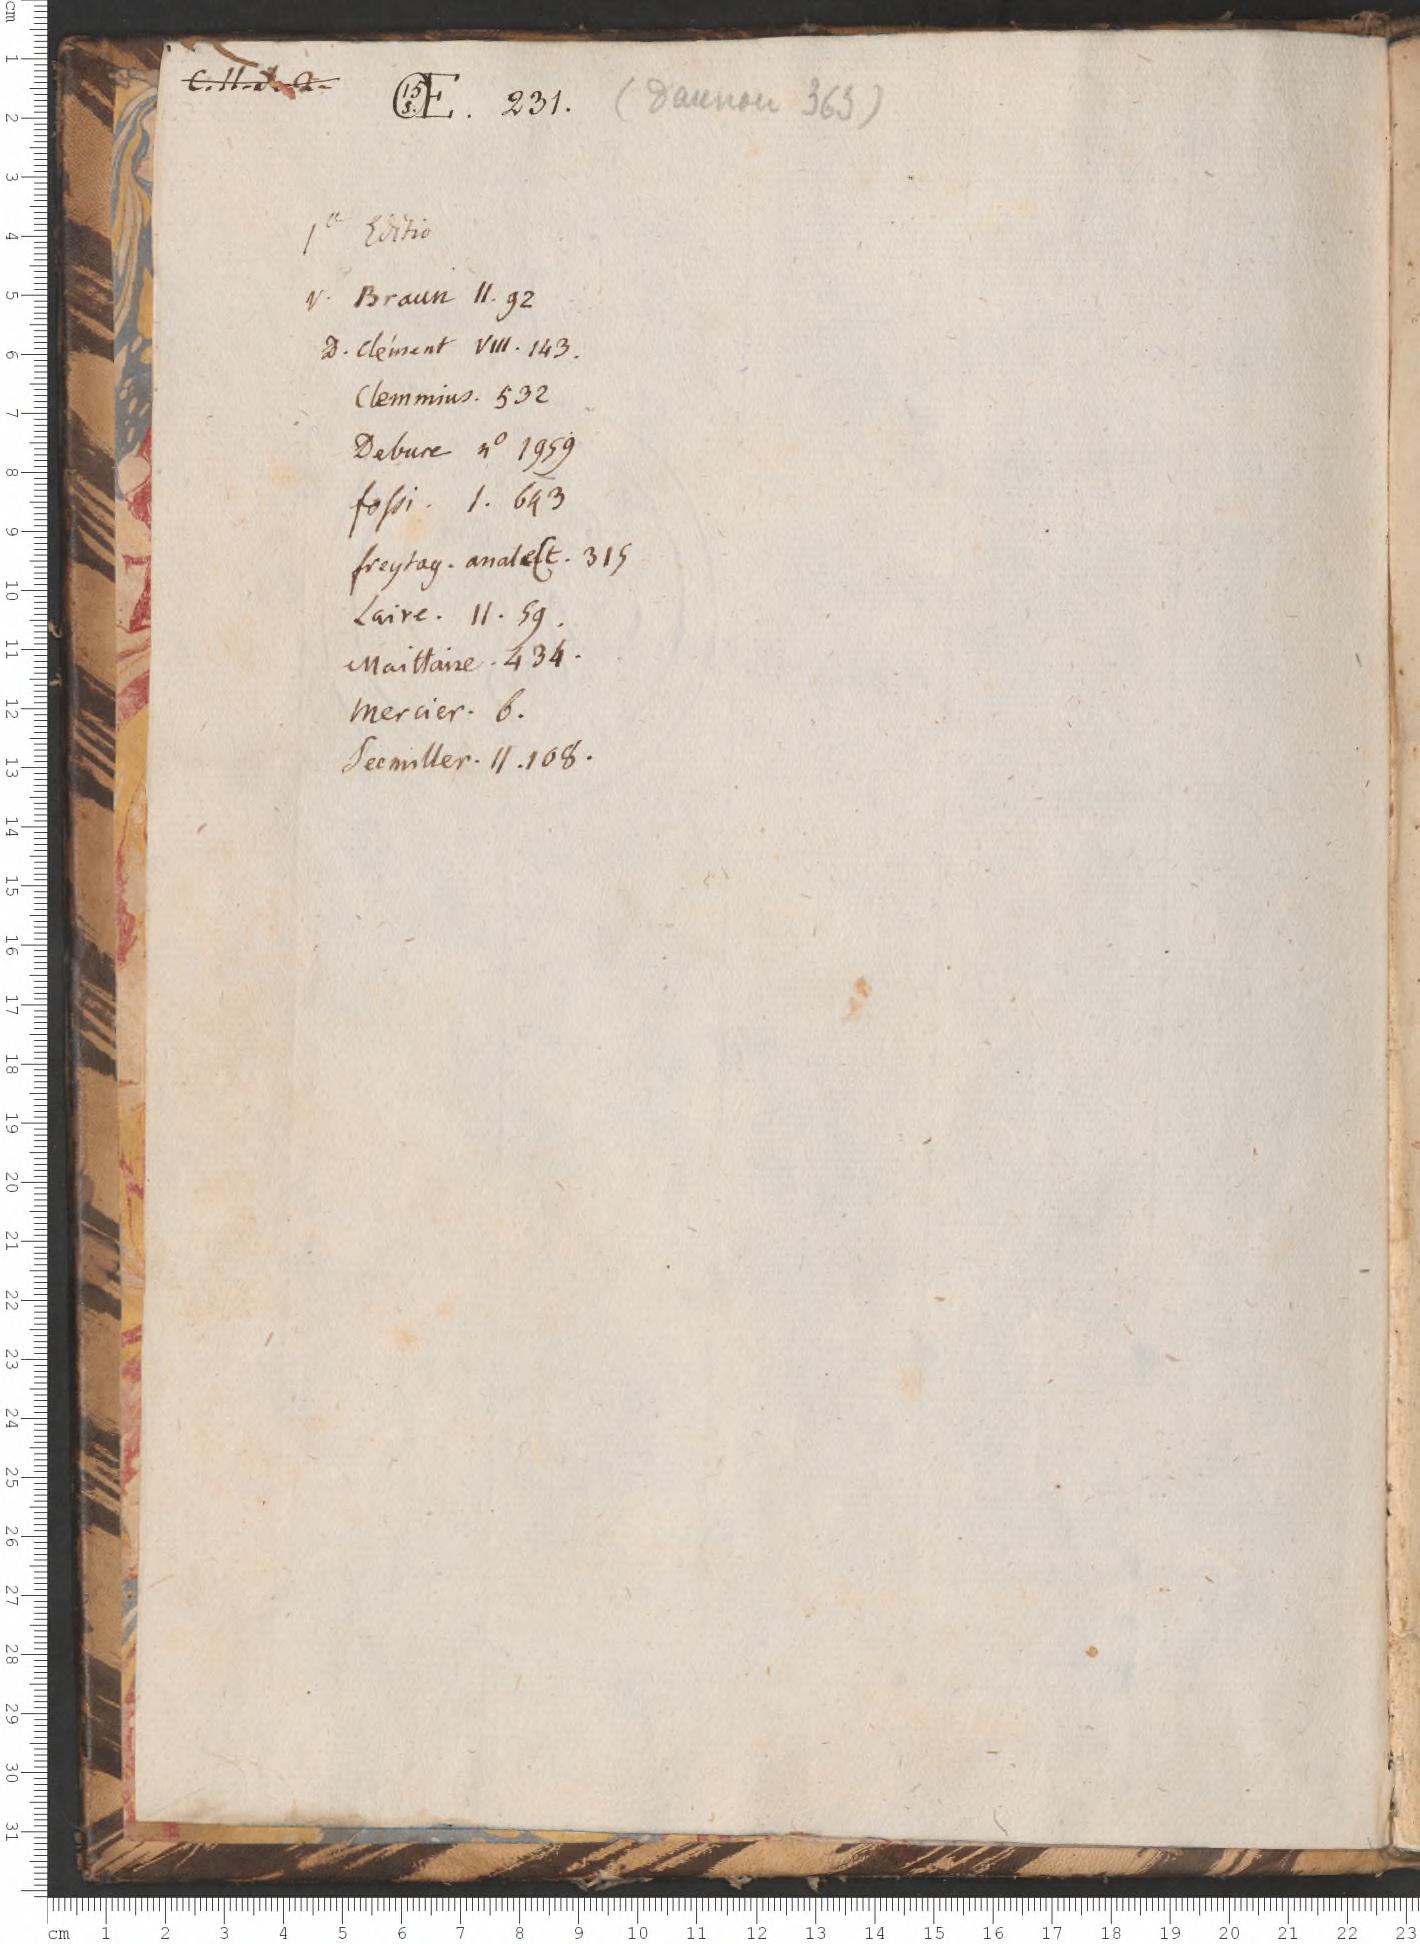 C. 11. d. 2.
Œ 15 s. 231. (Daunou 363)
1a Editio
v. Braun II. 92
D. Clément VIII. 143.
Clemmius. 532
Debure n° 1959
fossi. 1. 693
freytag. analect. 315
Laire. II. 59.
Maittaire. 434.
Mercier. 6.
Seemiller. II. 108.
cm 1 2 3 4 5 6 7 8 9 10 11 12 13 14 15 16 17 18 19 20 21 22 23 24 25 26 27 28 29 30 31
cm 1 2 3 4 5 6 7 8 9 10 11 12 13 14 15 16 17 18 19 20 21 22 23